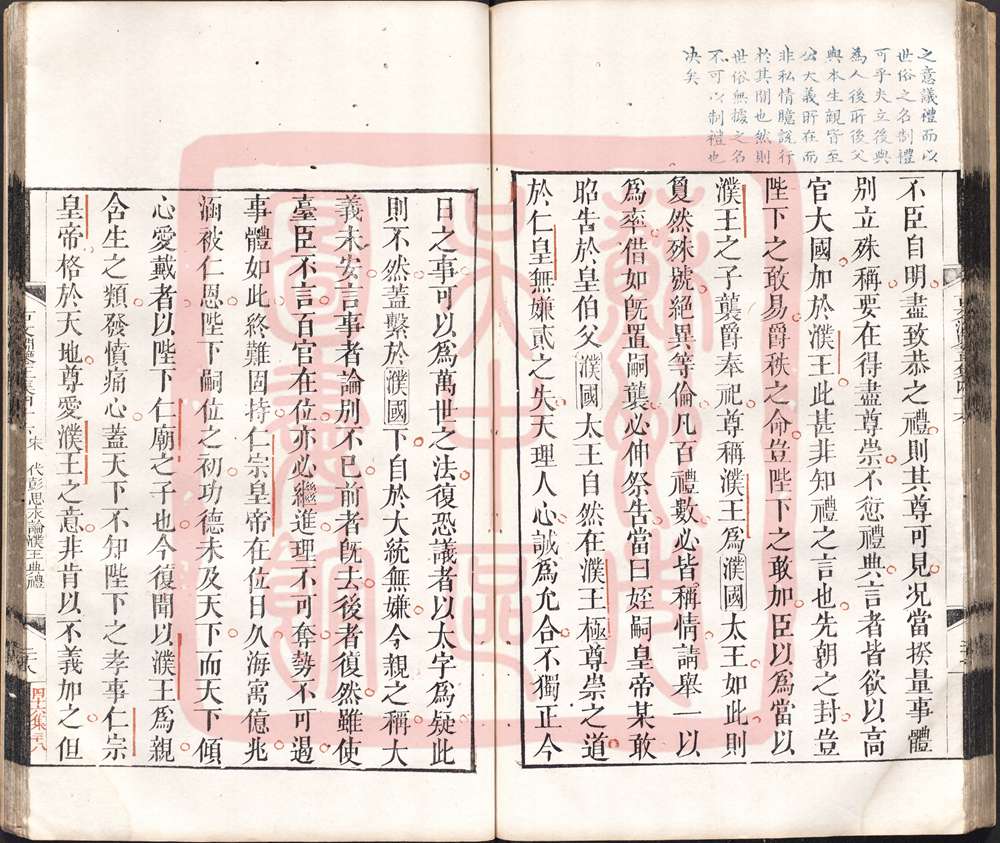 之意議禮而以
世俗之名制禮
可乎夫立後與
為人後所後父
與本生親皆至
公大義所在而
非私情臆說行
於其間也然則
世俗無據之名
不可以制禮也
决矣
不臣自明盡致恭之禮則其尊可見况當揆量事體
別立殊稱要在得盡尊崇不愆禮典言者皆欲以高
官大國加於濮王此甚非知禮之言也先朝之封豈
陛下之敢易爵秩之命豈陛下之敢加臣以為當以
濮王之子襲爵奉祀尊稱濮王為濮國太王如此則
夐然殊號絕異等倫凡百禮數必皆稱情請舉一以
為率借如既置嗣襲必伸祭告當曰姪嗣皇帝某敢
昭告於皇伯父濮國太王自然在濮王極尊崇之道
於仁皇無嫌貳之失天理人心誠為允合不獨正今
日之事可以為萬世之法復恐議者以太字為疑此
則不然蓋繫於濮國下自於大統無嫌今親之稱大
義未安言事者論別不已前者既去後者復然雖使
臺臣不言百官在位亦必繼進理不可奪勢不可遏
事體如此終難固持仁宗皇帝在位日久海㝢億兆
涵被仁恩陛下嗣位之初功德未及天下而天下傾
心愛戴者以陛下仁廟之子也今復聞以濮王為親
含生之類發憤痛心蓋天下不知陛下之孝事仁宗
皇帝格於天地尊愛濮王之意非肯以不義加之但
宋 代彭思永論濮王典禮